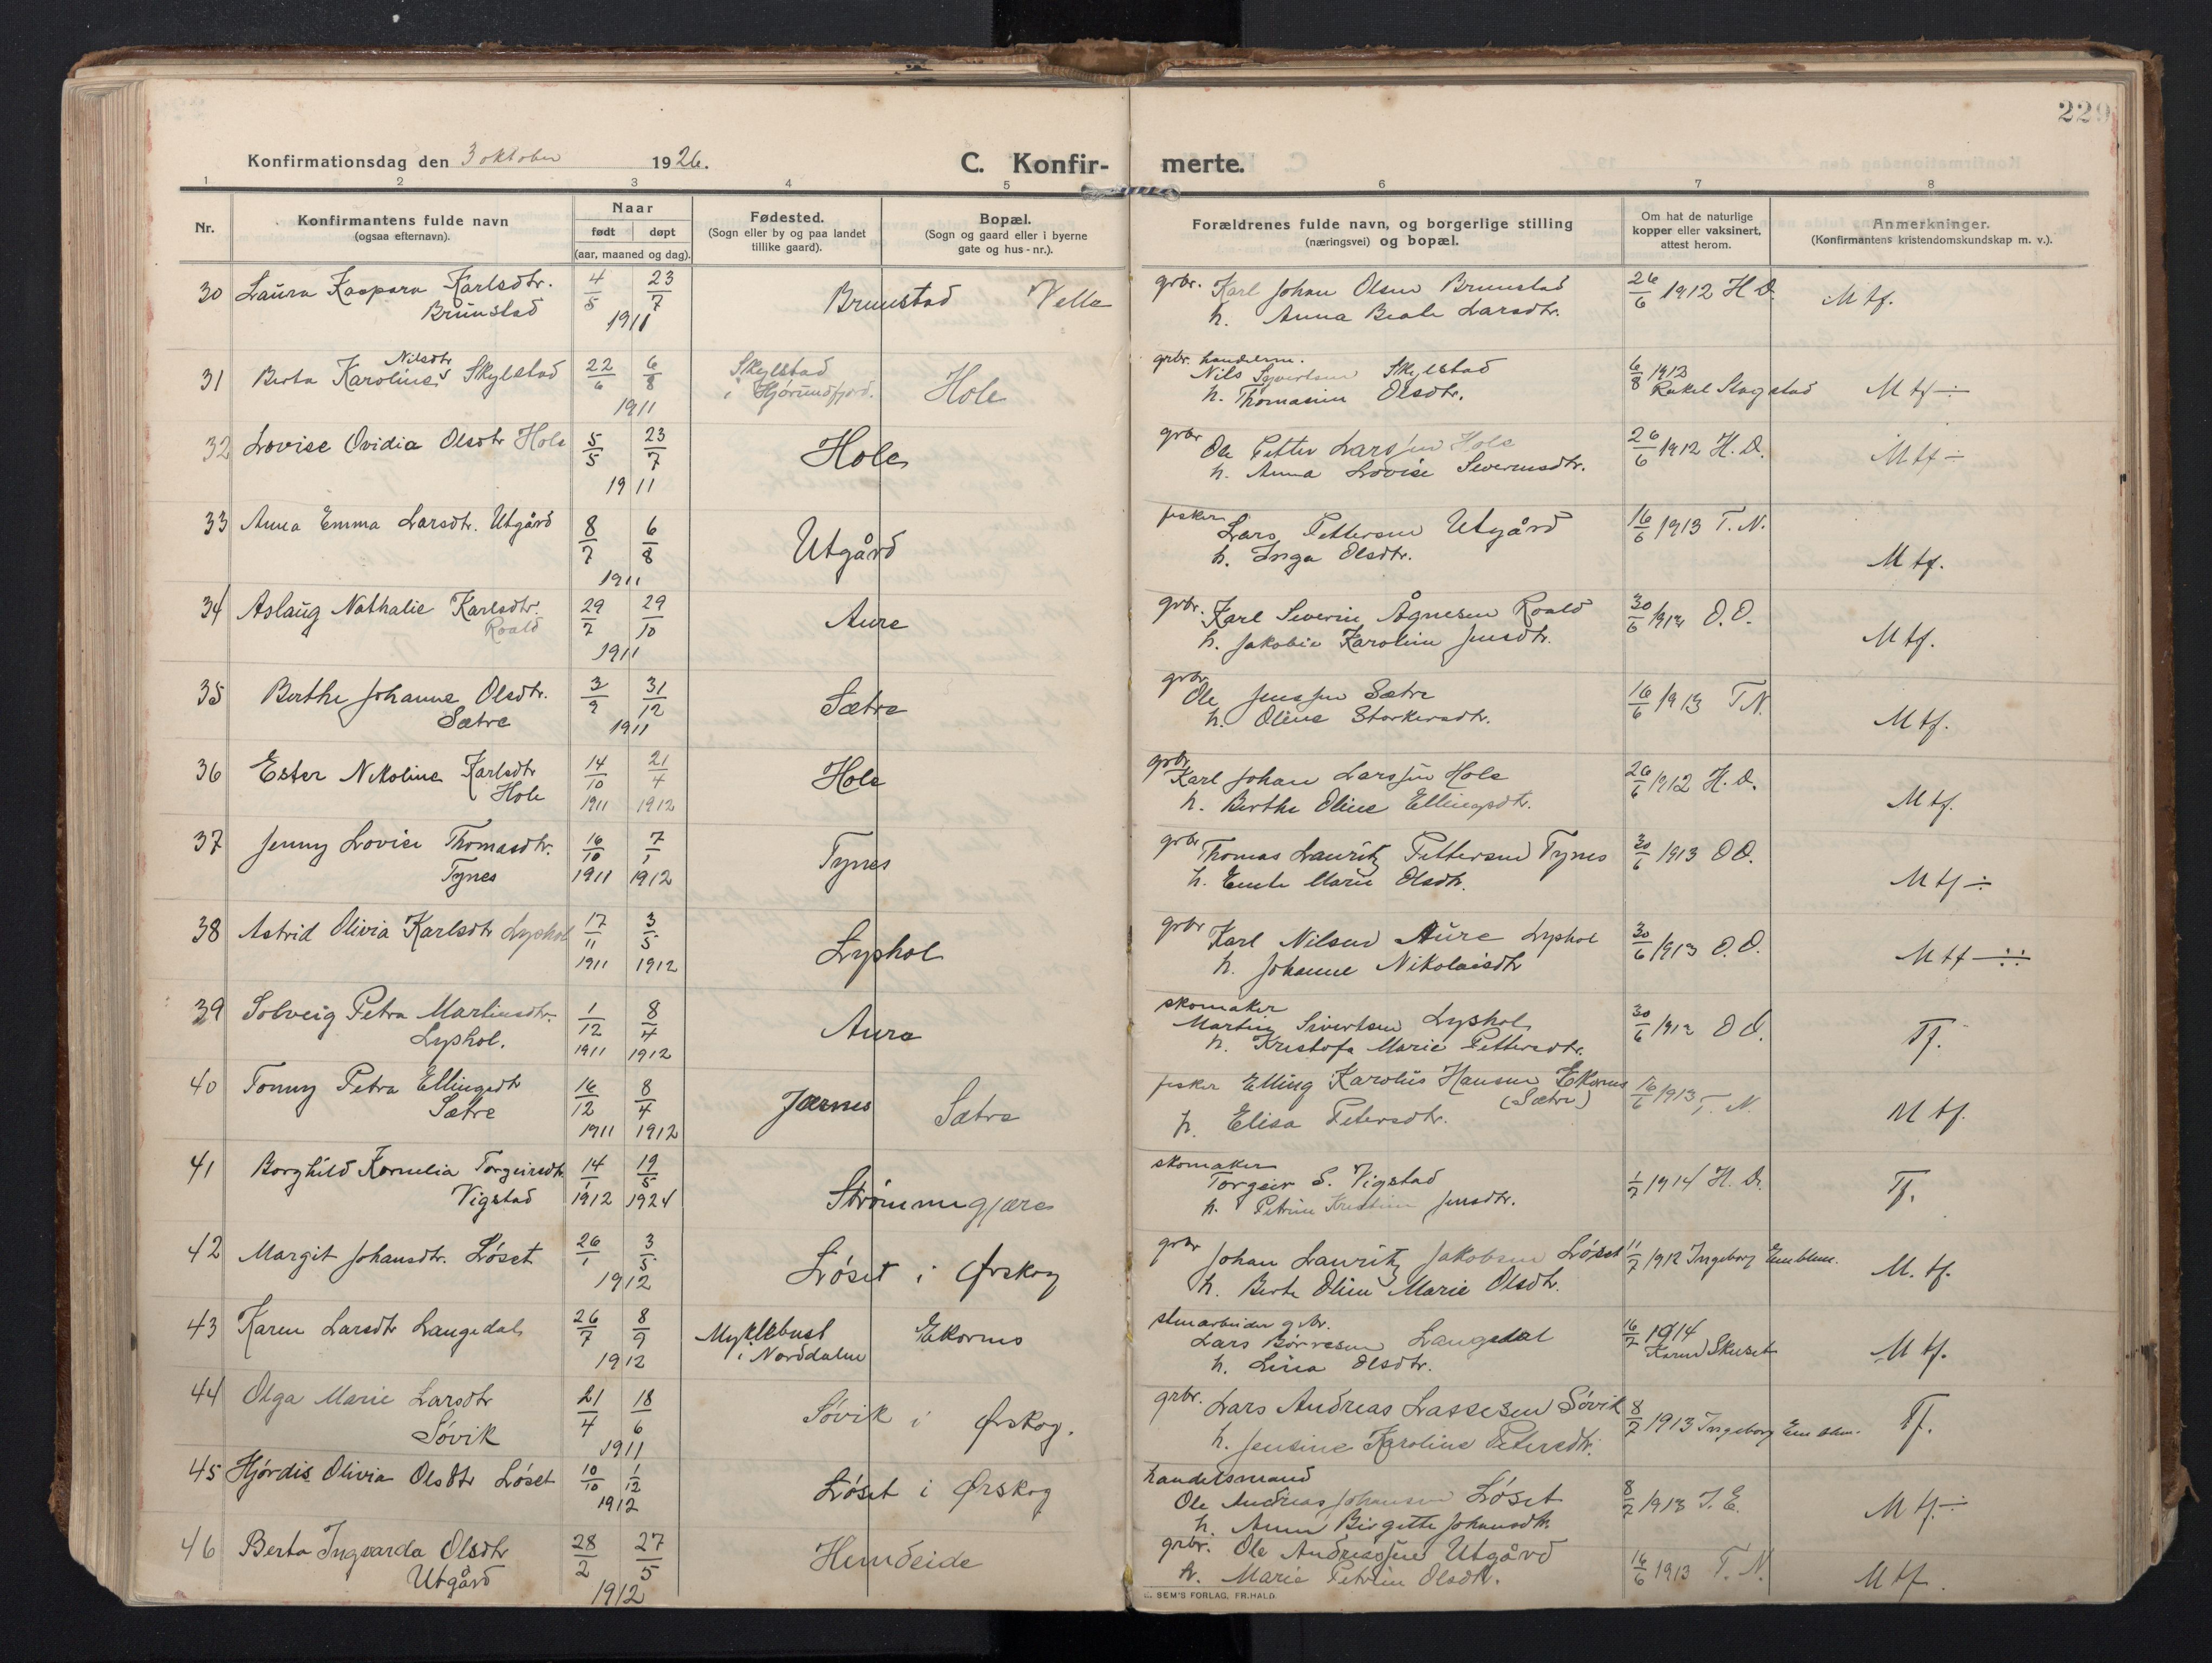 229
Konfirmationsdag den 3 oktober 1926.
C. Konfirmerte.
1 2 3 4 5 6 7 8
Nr.
Konfirmantens fulde navn
(ogsaa efternavn).
Naar
født døpt
(aar, maaned og dag).
Fødested.
(Sogn eller by og paa landet
tillike gaard).
Bopæl.
(Sogn og gaard eller i byerne
gate og hus-nr.).
Forældrenes fulde navn, og borgerlige stilling
(næringsvei) og bopæl.
Om hat de naturlige
kopper eller vaksinert,
attest herom.
Anmerkninger.
(Konfirmantens kristendomskundskap m. v.).
30 Laura Kaspara Karlsdtr. 4/5 23/7 Brunstad Velle grbr. Karl Johan Olsen Brunstad 26/6 1912 H. D. M tf.
Brunstad 1911 h. Anna Beate Larsdtr.
31 Berta Karoline Nilsdtr Skylstad 22/6 6/8 Skylstad Hole grbr. Nils Syvertsen Skylstad 6/8 1913 M tf ÷
1911 i Hjørundfjord. h. Thomasine Olsdtr. Rakel Slogstad
32 Lovise Ovidia Olsdtr Hole 5/5 23/7 Hole grbr Ole Petter Larssen Hole 26/6 1912 H. D. M tf ÷
1911 h. Anna Lovise Severinsdtr.
33 Anna Emma Larsdtr. Utgård 8/7 6/8 Utgård fisker Lars Pettersen Utgård 16/6 1913 T. N. M tf.
1911 h. Inga Olsdtr.
34 Aslaug Nathalie Karlsdtr. 29/7 29/10 Aure grbr. Karl Severin Ågnesen Roald 30/6 O. O. M tf.
Roald 1911 h. Jakobie Karoline Jensdtr.
35 Berthe Johanne Olsdtr. 3/9 31/12 Sætre grbr Ole Jenssen Sætre 16/6 1913 T. N. M tf.
Sætre 1911 h. Oline Storkersdtr.
36 Ester Nikoline Karlsdtr 14/10 21/4 Hole grbr Karl Johan Larssen Hole 26/6 1912 H. D. M tf.
Hole 1911 1912 h. Berthe Oline Ellingsdtr.
37 Jenny Lovise Thomasdtr. 16/10 7/1 Tynes grbr Thomas Lauritz Pettersen Tynes 30/6 1913 O O. M tf ÷
Tynes 1911 1912 h. Emte Marie Olsdtr.
38 Astrid Olivia Karlsdtr Lyshol 17/11 3/5 Lyshol grbr Karl Nilsen Aure Lyshol 30/6 1913 O. O. M tf ÷:
1911 1912 h. Johanne Nikolaisdtr
39 Solveig Petra Martinsdtr. 1/12 8/4 Aure skomaker Martin Sivertsen Lyshol 30/6 O O. Tf.
Lyshol. 1911 1912 h. Kristofa Marie Pettersdtr.
40 Tonny Petra Ellingsdtr 16/12 8/4 Jarnes Sætre fisker Elling Karolus Hansen Ekornes 16/6 1913 T. N. M tf.
Sætre 1911 1912 (Sætre) h. Elisa Petersdtr.
41 Borghild Kornelia Torgeirsdtr. 14/1 19/5 Strømmegjære skomaker Torgeir S. Vigstad 1/7 1914 H. D. Tf.
Vigstad 1912 1924 h. Petrine Kristine Jensdtr.
42 Margit Johansdtr. Løset 26/1 3/5 Løset i Ørskog grbr Johan Lauritz Jakobsen Løset 11/7 1912 Ingeborg Emblem. M. tf.
1912 h. Berte Oline Marie Olsdtr.
43 Karen Larsdtr Langedal 26/7 8/9 Myklebust Ekornes stenarbeider grbr. Lars Børresen Langedal 16/7 1914 M tf.
1912 i Norddalen h. Lina Olsdtr. Karen Skuset
44 Olga Marie Larsdtr 21/4 18/6 Søvik i Ørskog. grbr. Lars Andreas Lassesen Søvik 8/7 1913 Ingeborg Emblem. Tf.
Søvik 1911 h. Jensine Karoline Petersdtr.
45 Hjørdis Olivia Olsdtr Løset 10/10 1/12 Løset i Ørskog handelsmand Ole Andreas Johansen Løset 8/7 1913 I. E. M tf ÷
1912 h. Anne Birgitte Johansdtr.
46 Berta Ingvarda Olsdtr 28/2 27/5 Hundeide grbr. Ole Andreassen Utgård 16/6 1913 T. N. M tf.
Utgård 1912 h. Marie Petrine Olsdtr.
SEM'S FORLAG, FR.HALD